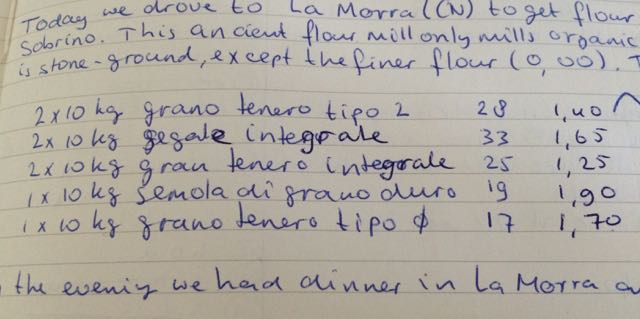 Today we drove to La Morra (CN) to get flour
Sobrino. This ancient flour mill only mills organic
is stone-ground, except the finer flour (0, 00). T
2x10 kg grano tenero tipo 2 28 1,40
2x10 kg segale integrale 33 1,65
2x10 kg gran tenero integrale 25 1,25
1x10 kg semola di grano duro 19 1,90
1x10 kg grano tenero tipo 0 17 1,70
the evening we had dinner in La Morra